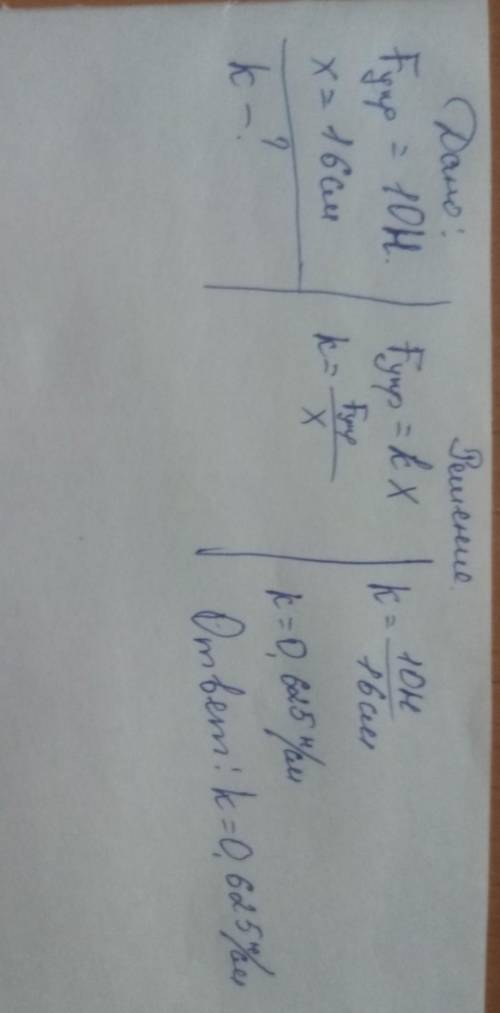 Дано:
Fупр = 10Н.
x = 16см
k - ?
Решение
Fупр = kx
k = Fупр/x
k = 10Н/16см
k = 0,625 н/см
Ответ: k = 0,625 н/см